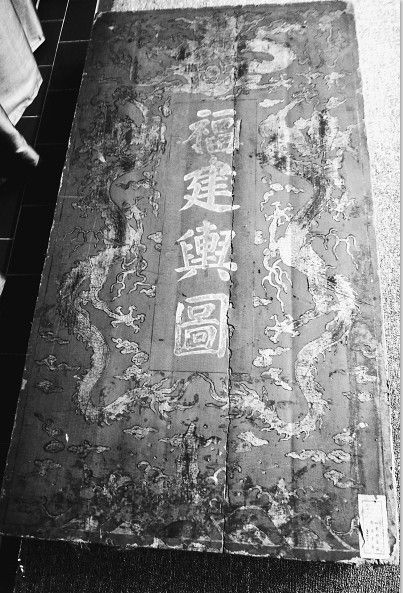 福建輿圖